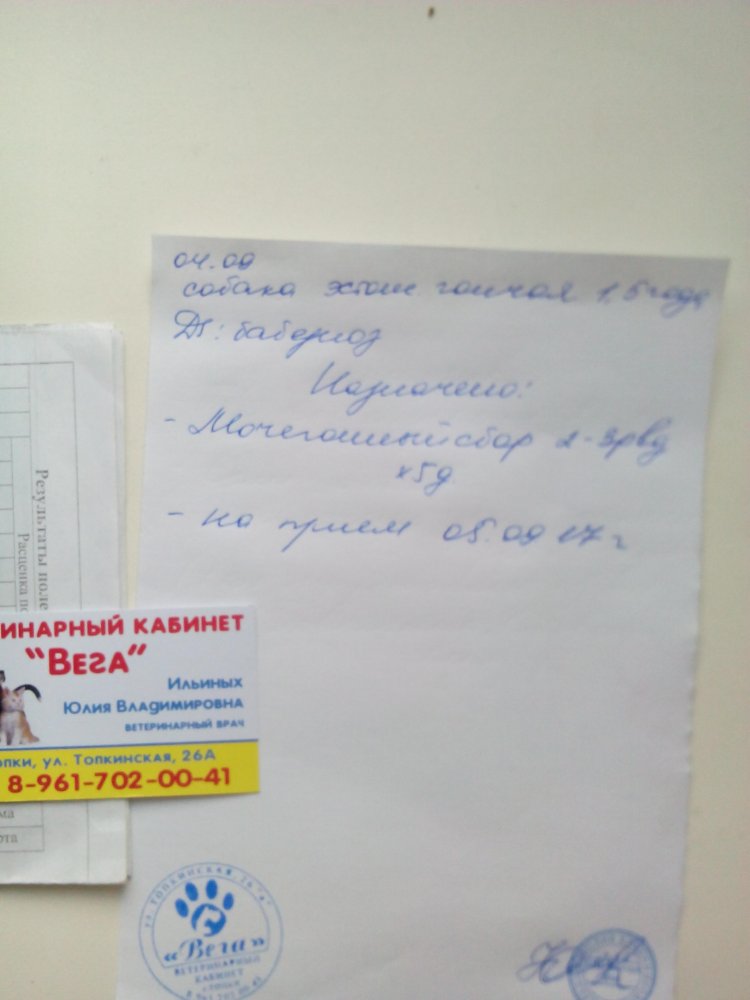 04.09
собака эстон. гончая 1,5 года
DS: бабезиоз
Назначено:
- Мочегонный сбор 2-3 р в д
х5д
- на прием 05.09 17 г
Результаты поле
Расценка по
ИНАРНЫЙ КАБИНЕТ
"ВЕГА"
Ильиных
Юлия Владимировна
ВЕТЕРИНАРНЫЙ ВРАЧ
опки, ул. Топкинская, 26А
8-961-702-00-41
ма
ота
ул. ТОПКИНСКАЯ, 26 "А"
«Вега»
ВЕТЕРИНАРНЫЙ
КАБИНЕТ
г.ТОПКИ
8 961 702-00-41